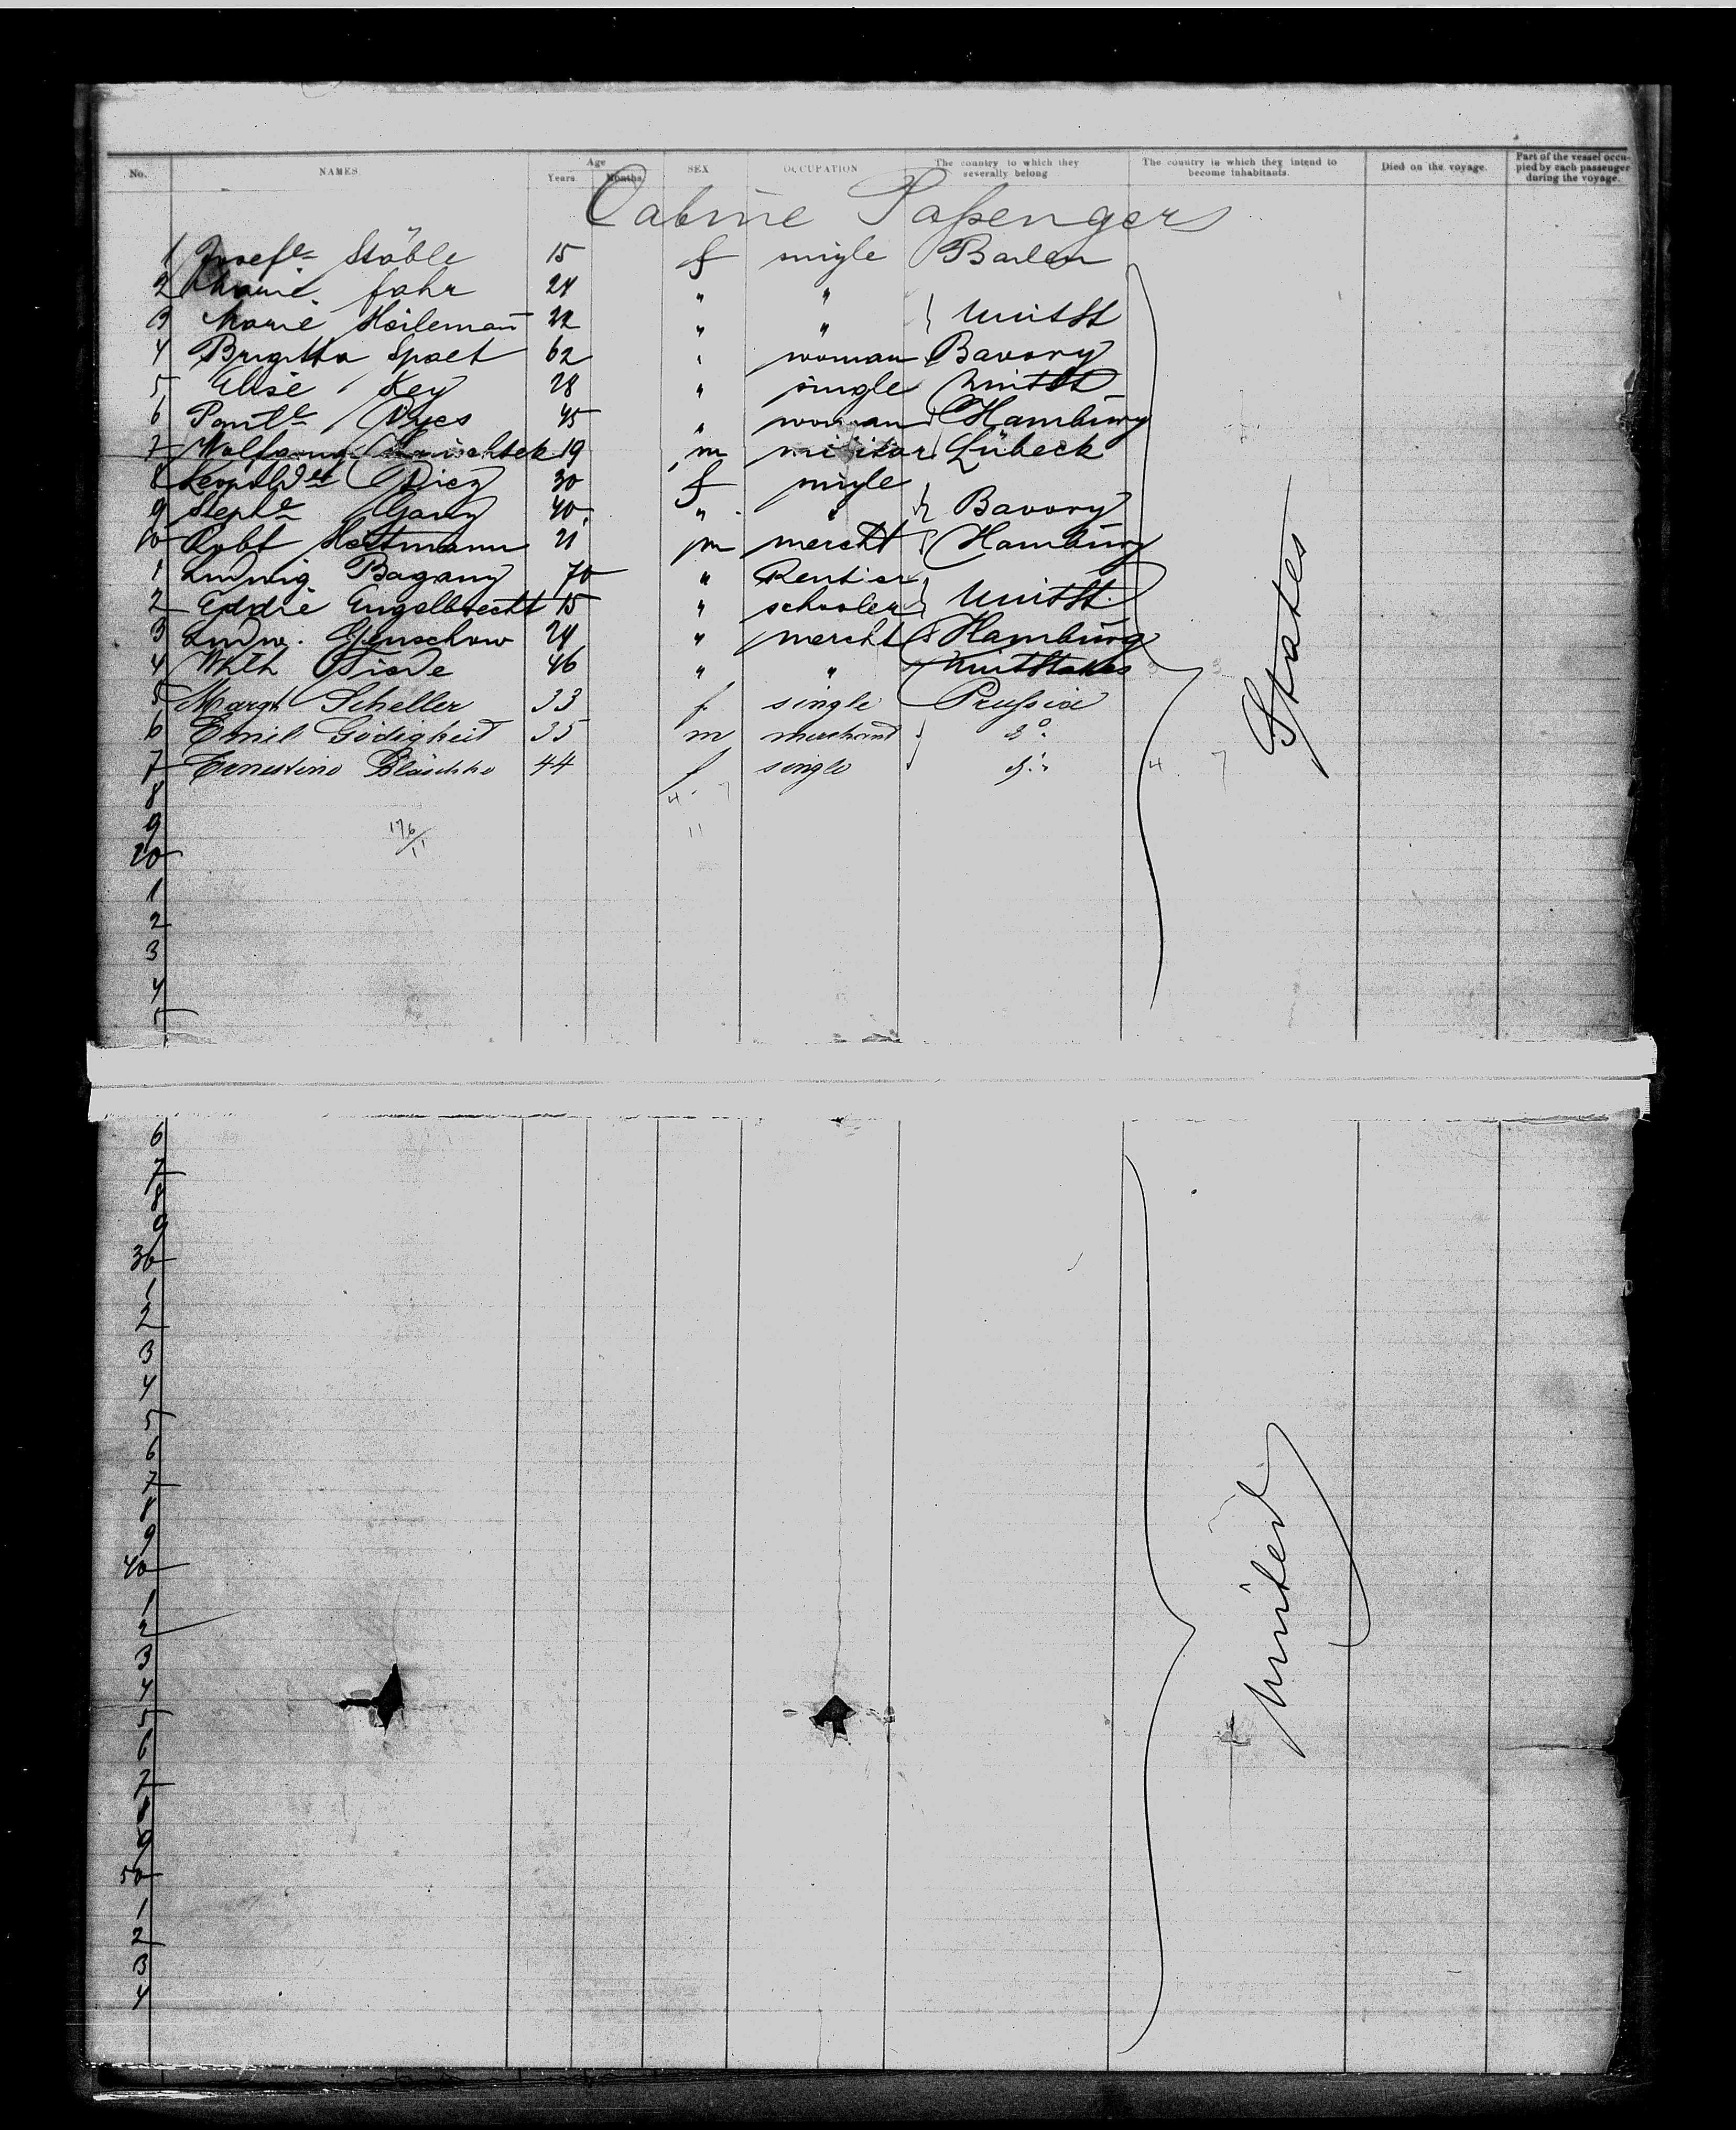 No. NAMES Age Years Months SEX OCCUPATION The country to which they severally belong The country in which they intend to become inhabitants. Died on the voyage. Part of the vessel occupied by each passenger during the voyage.
Cabine Passengers
1 Josefe Stöble 15 f single Baden
2 fahr 24 " "
3 Marie Heilemann 22 " " UnitSt
4 Brigitta Spaet 62 " woman Bavory
5 Elise Key 28 " single UnitSt
6 Dyes 45 " woman Hamburg
7 Wolfgang 19 m Lübeck
8 Diez 30 f single
9 Stephe 40 " " Bavory
10 Robt Hartmann 21 m mercht Hamburg
1 Ludwig Bagany 70 " Rentier
2 Eddie Engelbrecht 15 " schooler UnitSt.
3 Ludw. Genschow 24 " mercht Hamburg
4 Whlh Tiede 46 " " UnitStates
5 Margt Scheller 33 f single Prussia
6 Emil Gödigheid 35 m merchand do
7 Ernestine Blaschko 44 f single do
4 7
4 7
8
9
176/11
11
20
1
2
3
4
5
States
6
7
8
9
30
1
2
3
4
5
6
7
8
9
40
1
2
3
4
5
6
7
8
9
50
1
2
3
4
United